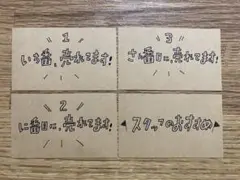 1
いち番、売れてます!
3
さん番目に、売れてます!
2
に番目に、売れてます!
スタッフのおすすめ